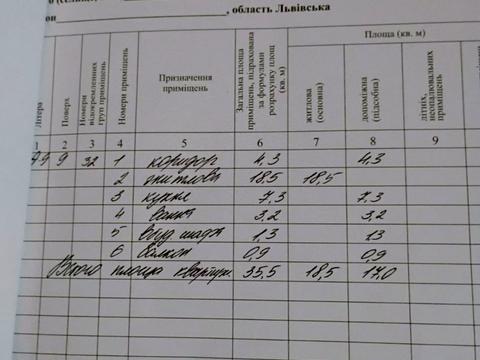 он , область Львівська
Літера
Поверх
Номери відокремлених груп приміщень
Номери приміщень
Призначення приміщень
Загальна площа приміщень, підрахована за формулами розрахунку площ (кв. м)
Площа (кв. м)
житлова (основна)
допоміжна (підсобна)
літніх, неопалювальних приміщень
1 2 3 4 5 6 7 8 9
9 32 1 коридор 4,3 4,3
2 житлова 18,5 18,5
3 кухня 7,3 7,3
4 ванна 3,2 3,2
5 вбуд. шафа 1,3 1,3
6 балкон 0,9 0,9
Всього площа квартири 35,5 18,5 17,0